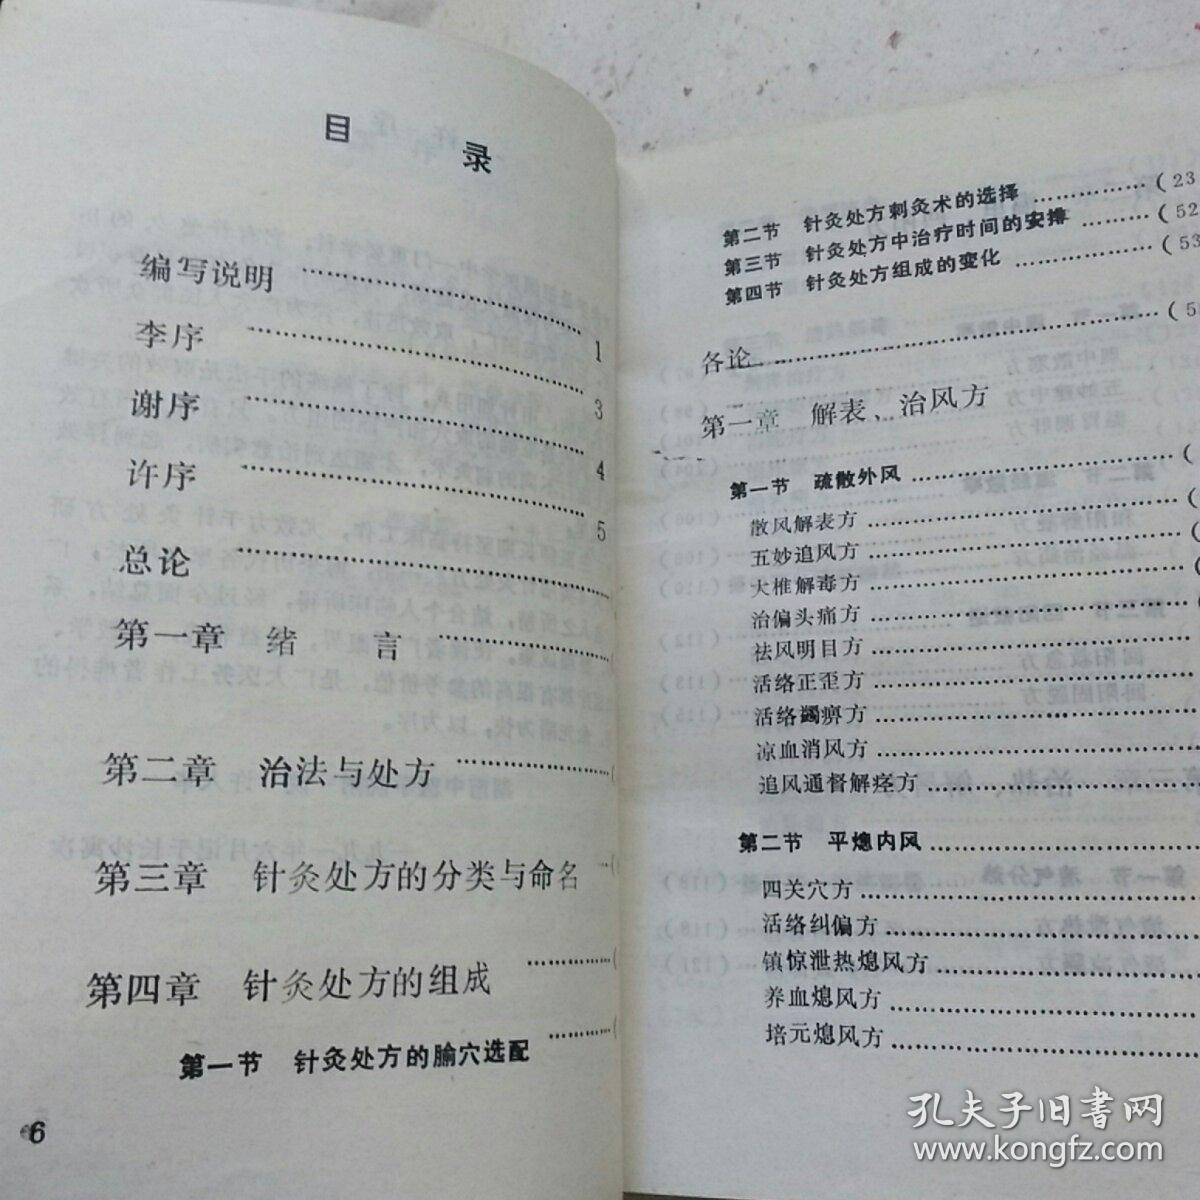 目 录
编写说明 …………………… 1
李序 …………………… 3
谢序 …………………… 4
许序 …………………… 5
总论 ……………………
第一章 绪 言 ……………(
第二章 治法与处方 ……………(
第三章 针灸处方的分类与命名 …(
第四章 针灸处方的组成 ………(
第一节 针灸处方的腧穴选配 ………(
6
第二节 针灸处方刺灸术的选择 ……………(23
第三节 针灸处方中治疗时间的安排 …………(52
第四节 针灸处方组成的变化 ……………(53
各论 ……………………………(5
第一章 解表、治风方
第一节 疏散外风 ……………………(
散风解表方 ……………………(
五妙追风方 ……………………(
大椎解毒方 ……………………(
治偏头痛方 ……………………
祛风明目方 ……………………
活络正歪方 ……………………
活络蠲痹方 ……………………
凉血消风方 ……………………
追风通督解痉方 ……………………
第二节 平熄内风 ……………………
四关穴方 ……………………
活络纠偏方 ……………………
镇惊泄热熄风方 ……………………
养血熄风方 ……………………
培元熄风方 ……………………
孔夫子旧书网
www.kongfz.com